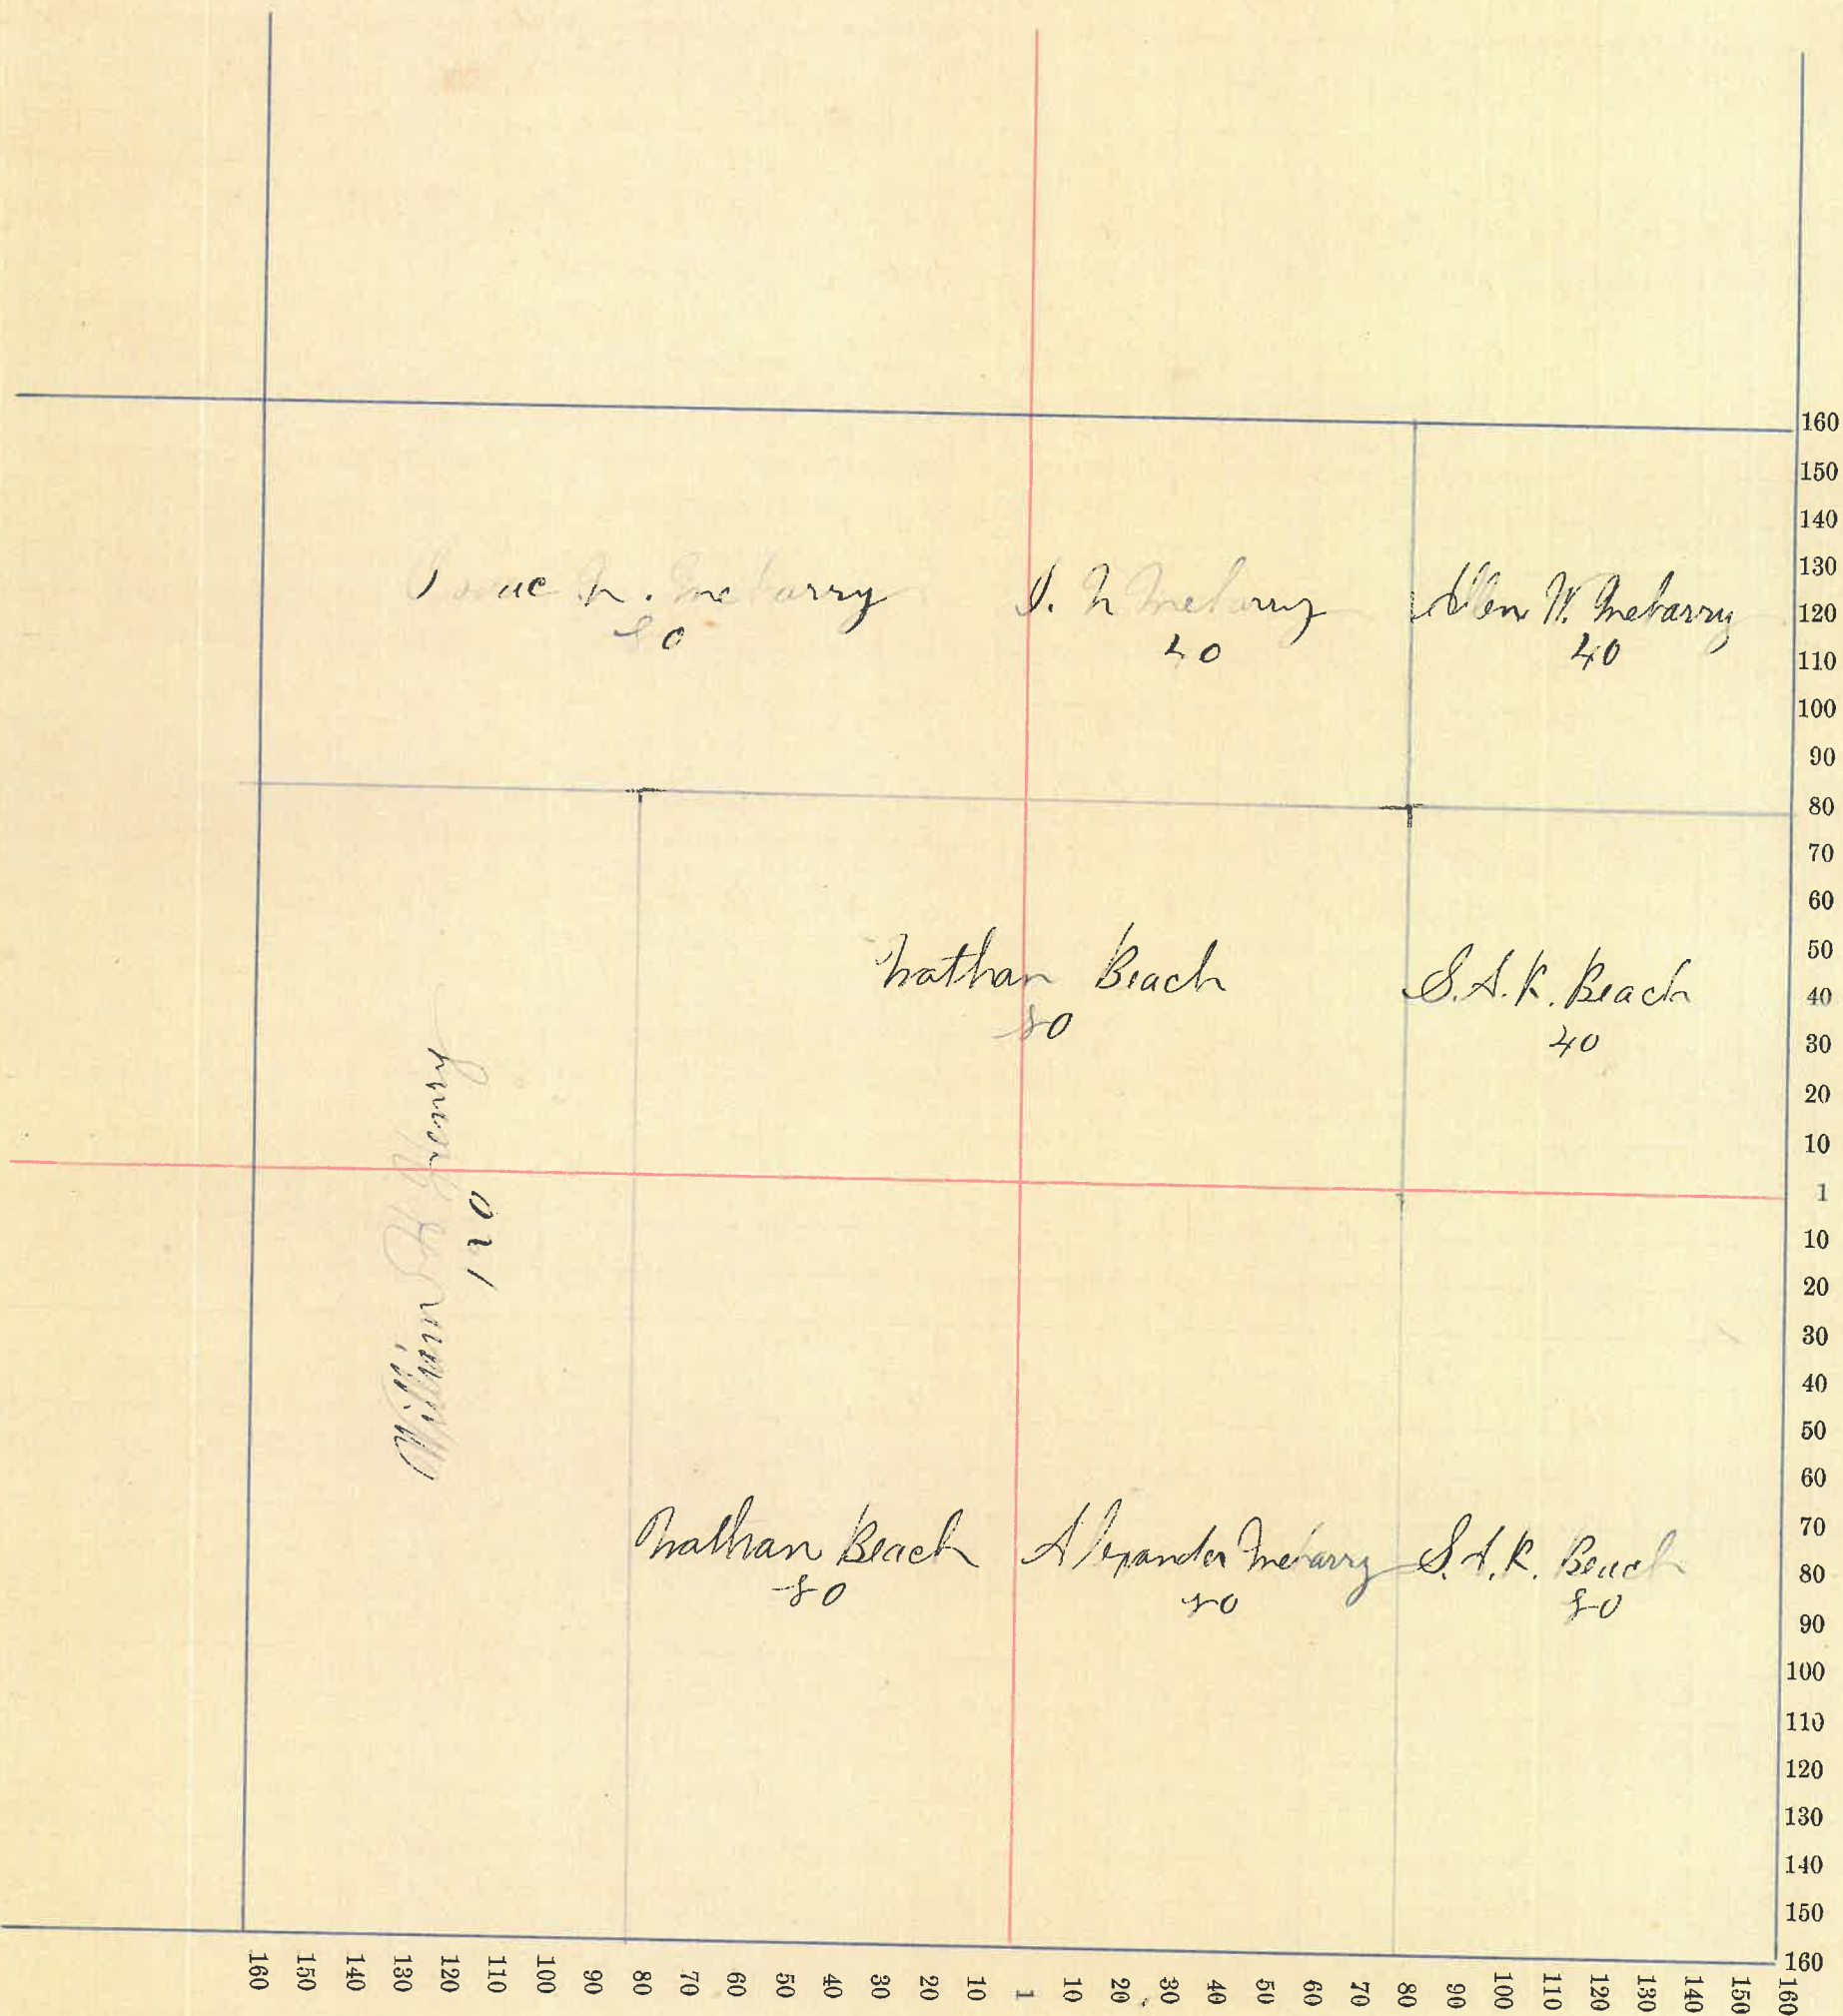 Isaac N. McCarry
80
I. N McCarry
40
Allen W. McCarry
40
Nathan Beach
80
S. A. K. Beach
40
120
Nathan Beach
80
Alexander McCarry
80
S. A. K. Beach
80
160
150
140
130
120
110
100
90
80
70
60
50
40
30
20
10
1
10
20
30
40
50
60
70
80
90
100
110
120
130
140
150
160
160 150 140 130 120 110 100 90 80 70 60 50 40 30 20 10 1 10 20 30 40 50 60 70 80 90 100 110 120 130 140 150 160